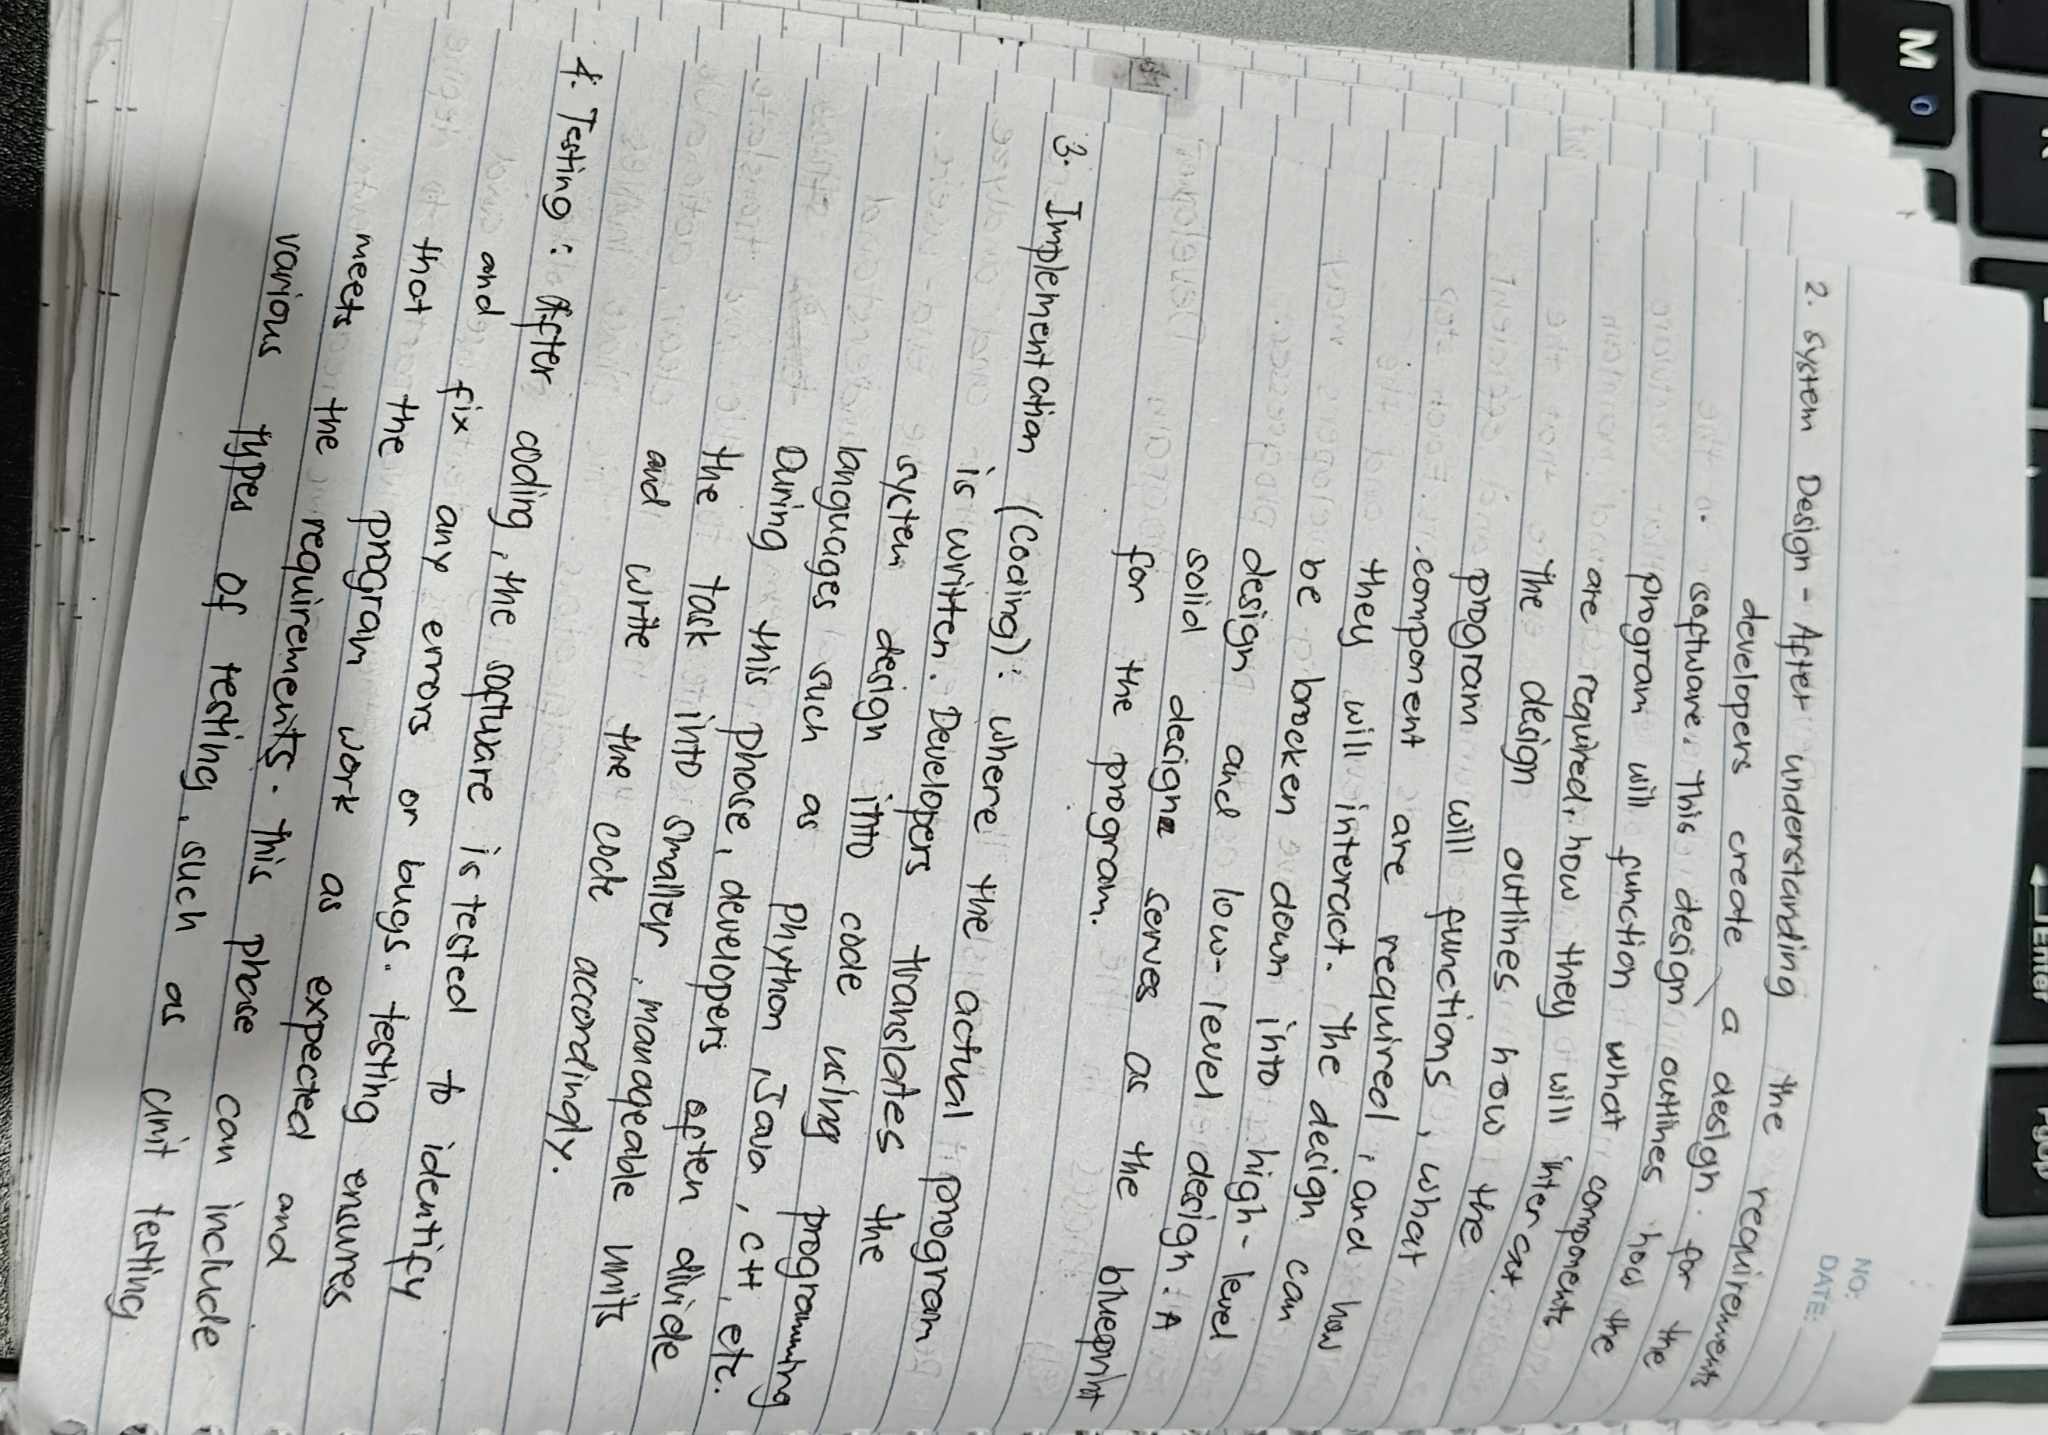 NO:
DATE:
2. System Design - After understanding the requirements
developers create a design for the
software. This design outlines how the
program will function what components
are required, how they will interact.
The design outlines how the
program will functions, what
component are required, and how
they will interact. The design can
be brocken down into high-level
design and low-level design. A
solid design serves as the blueprint
for the program.
3. Implementation (Coding): where the actual program
is written. Developers translates the
system design into code using programming
languages such as phython, Java, C++, etc.
During this phase, developers often divide
the task into smaller, manageable units
and write the code accordingly.
4. Testing: After coding, the software is tested to identify
and fix any errors or bugs. testing ensures
that the program work as expected and
meets the requirements. this phase can include
various types of testing, such as unit testing
M
Enter
PgUp